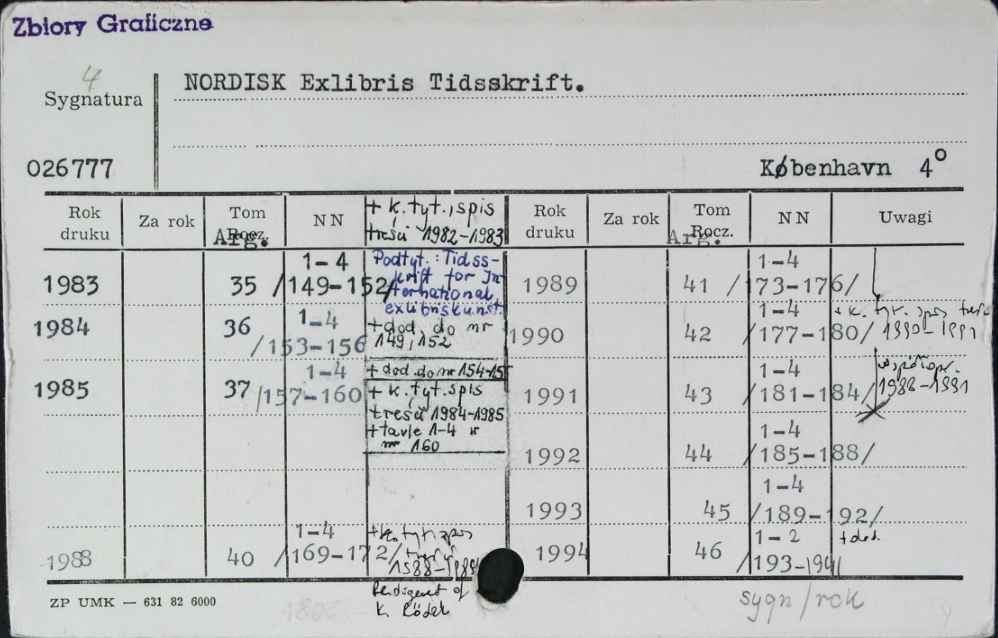 Zbiory Graficzne
4
Sygnatura
NORDISK Exlibris Tidsskrift.
026777
København 4°
Rok druku
Za rok
Tom Rocz.
Arg.
NN
+ k. tyt., spis
treści 1982-1983
Rok druku
Za rok
Tom Rocz.
Arg.
NN
Uwagi
1983 35 1-4 /149-152/
Podtyt.: Tidss-
krift for In
ternational
exlibriskunst.
1984 36 1-4 /153-156
+ dod. do nr
149, 152
+ dod. do nr 154-15
1985 37 1-4 /157-160
+ k. tyt. spis
treści 1984-1985
+ tavle 1-4 w
nr 160
1988 40 1-4 /169-172/
+ k. tyt. spis
treści
1988-1989
K. Röder
1989 41 1-4 /173-176/
1990 42 1-4 /177-180/
+ k. tyt. spis treśc
1990-1991
1991 43 1-4 /181-184/
współopr.
1988-1991
1992 44 1-4 /185-188/
1993 45 1-4 /189-192/
1994 46 1-2 /193-194/
+ dod.
ZP UMK — 631 82 6000
sygn/rok